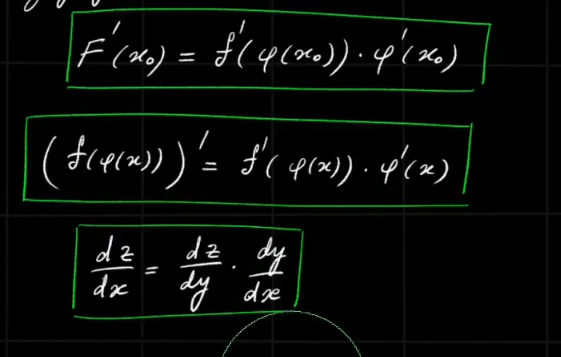 F'(x₀) = f'(φ(x₀)) · φ'(x₀)
(f(φ(x)))' = f'(φ(x)) · φ'(x)
dz/dx = dz/dy · dy/dx